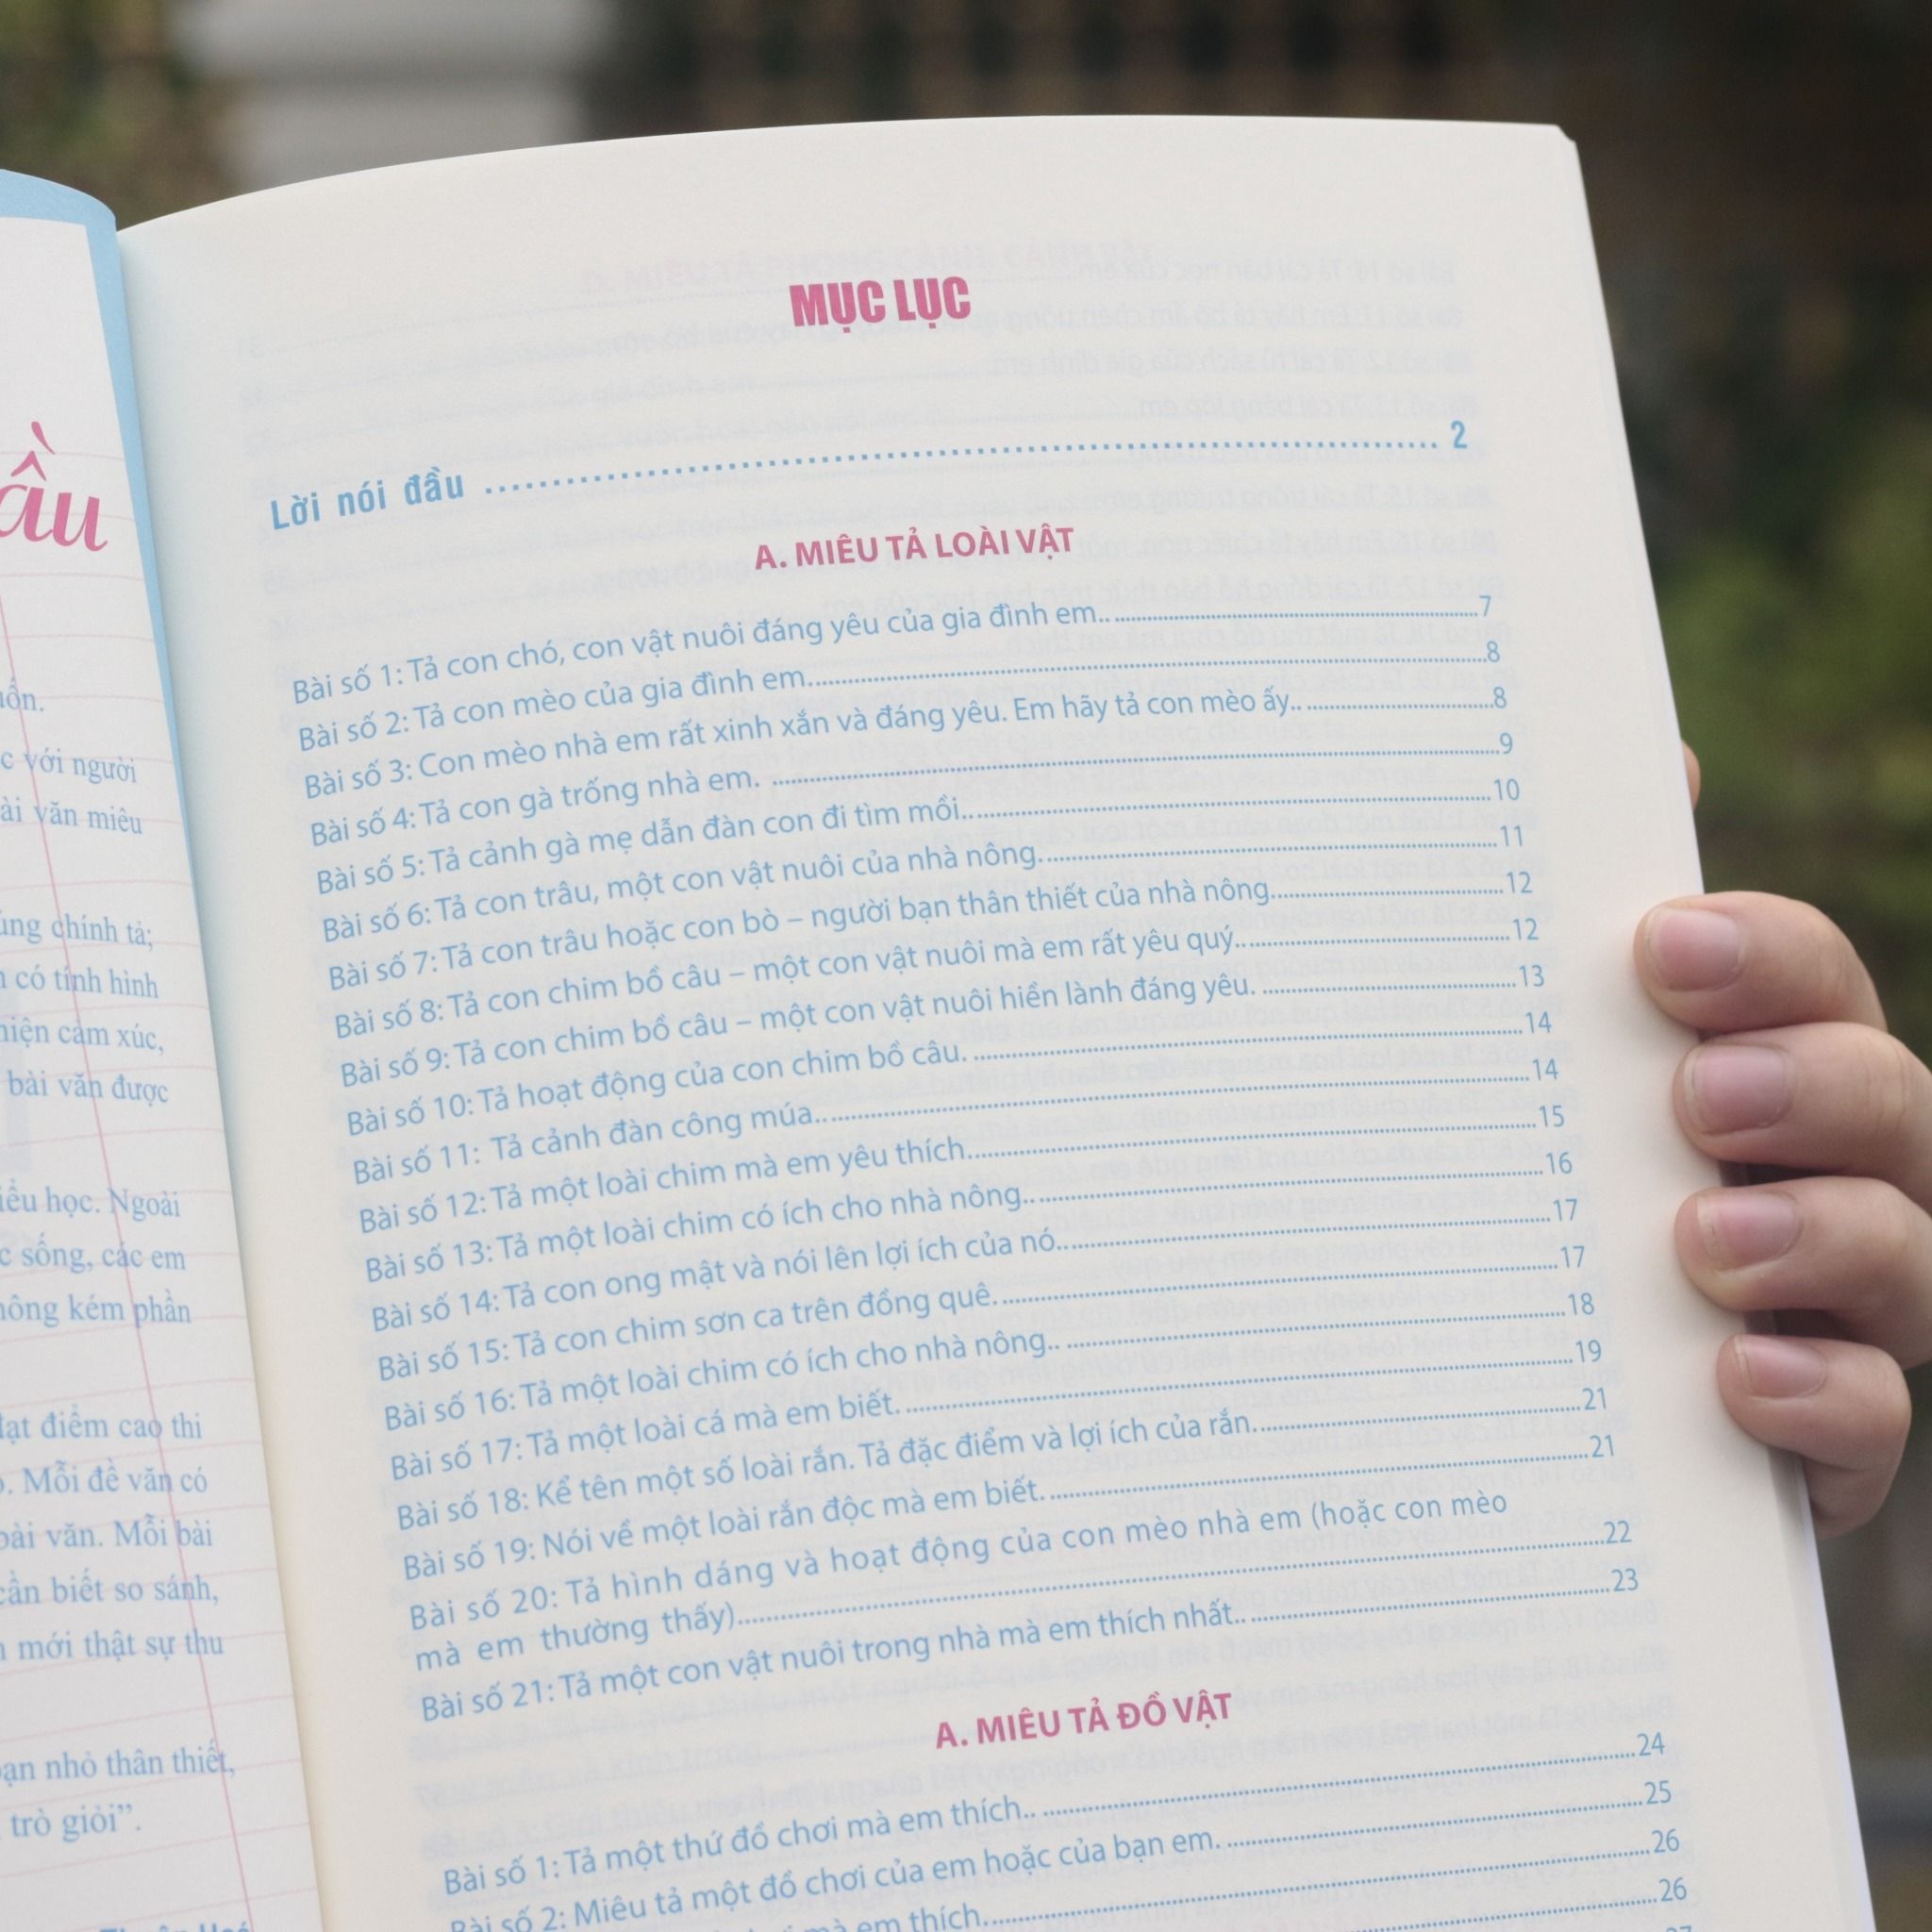 ầu
ốn.
c với người
ài văn miêu
úng chính tả;
có tính hình
hiện cảm xúc,
bài văn được
iểu học. Ngoài
c sống, các em
hông kém phần
đạt điểm cao thi
. Mỗi đề văn có
bài văn. Mỗi bài
cần biết so sánh,
mới thật sự thu
bạn nhỏ thân thiết,
trò giỏi”.
MỤC LỤC
Lời nói đầu ........ 2
A. MIÊU TẢ LOÀI VẬT
Bài số 1: Tả con chó, con vật nuôi đáng yêu của gia đình em........7
Bài số 2: Tả con mèo của gia đình em........8
Bài số 3: Con mèo nhà em rất xinh xắn và đáng yêu. Em hãy tả con mèo ấy........8
Bài số 4: Tả con gà trống nhà em. ........9
Bài số 5: Tả cảnh gà mẹ dẫn đàn con đi tìm mồi........10
Bài số 6: Tả con trâu, một con vật nuôi của nhà nông........11
Bài số 7: Tả con trâu hoặc con bò – người bạn thân thiết của nhà nông........12
Bài số 8: Tả con chim bồ câu – một con vật nuôi mà em rất yêu quý........12
Bài số 9: Tả con chim bồ câu – một con vật nuôi hiền lành đáng yêu. ........13
Bài số 10: Tả hoạt động của con chim bồ câu. ........14
Bài số 11: Tả cảnh đàn công múa........14
Bài số 12: Tả một loài chim mà em yêu thích........15
Bài số 13: Tả một loài chim có ích cho nhà nông........16
Bài số 14: Tả con ong mật và nói lên lợi ích của nó........17
Bài số 15: Tả con chim sơn ca trên đồng quê........17
Bài số 16: Tả một loài chim có ích cho nhà nông.. ........18
Bài số 17: Tả một loài cá mà em biết........19
Bài số 18: Kể tên một số loài rắn. Tả đặc điểm và lợi ích của rắn........21
Bài số 19: Nói về một loài rắn độc mà em biết........21
Bài số 20: Tả hình dáng và hoạt động của con mèo nhà em (hoặc con mèo
mà em thường thấy)........22
Bài số 21: Tả một con vật nuôi trong nhà mà em thích nhất........23
A. MIÊU TẢ ĐỒ VẬT
Bài số 1: Tả một thứ đồ chơi mà em thích.. ........24
Bài số 2: Miêu tả một đồ chơi của em hoặc của bạn em. ........25
mà em thích........26
26